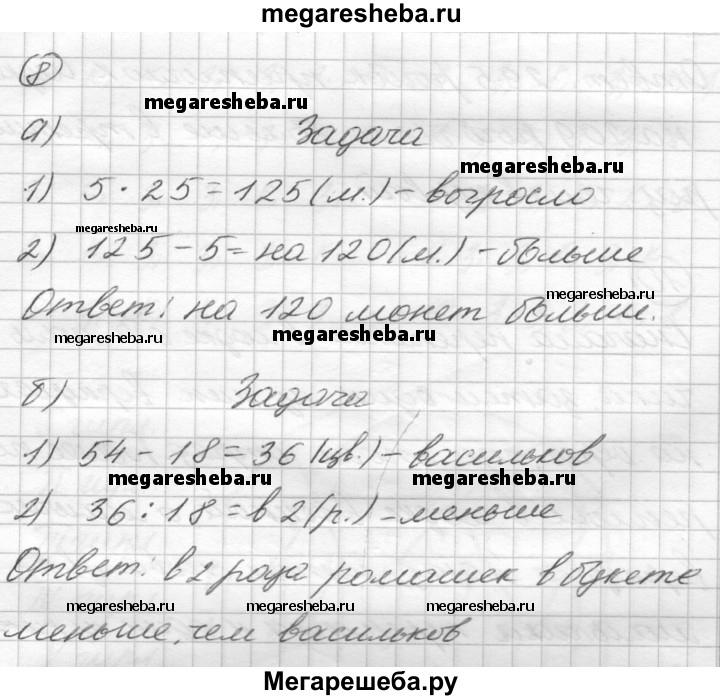 megaresheba.ru
8
megaresheba.ru
а) Задача
megaresheba.ru
1) 5 · 25 = 125 (м.) - выросло
megaresheba.ru
2) 125 - 5 = на 120 (м.) - больше
megaresheba.ru
Ответ: на 120 монет больше.
megaresheba.ru
megaresheba.ru
б) Задача
1) 54 - 18 = 36 (цв.) - васильков
megaresheba.ru megaresheba.ru
2) 36 : 18 = в 2 (р.) - меньше
Ответ: в 2 раза ромашек в букете
megaresheba.ru megaresheba.ru megaresheba.ru
меньше, чем васильков
Мегарешеба.ру